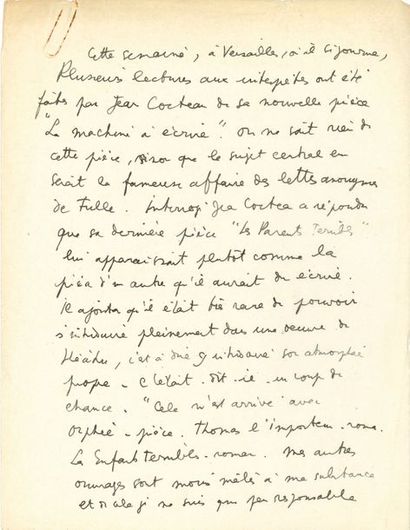 Cette semaine, à Versailles, où il séjourne,
Plusieurs lectures aux interprètes ont été
faites par Jean Cocteau de sa nouvelle pièce
"La machine à écrire". On ne sait rien de
cette pièce, sinon que le sujet central en
serait la fameuse affaire des lettres anonymes
de Tulle. Interrogé Jean Cocteau a répondu
que sa dernière pièce "Les Parents Terribles"
lui apparaissait plutôt comme la
pièce d'un autre qu'il aurait dû écrire.
Il ajouta qu'il était très rare de pouvoir
s'introduire pleinement dans une oeuvre de
théâtre, c'est à dire y introduire son atmosphère
propre - c'était - dit-il - un coup de
chance. "Cela m'est arrivé avec
Orphée - pièce. Thomas l'imposteur - roman.
Les Enfants terribles - roman. Mes autres
ouvrages sont moins mêlés à ma substance
et de cela je ne suis que peu responsable